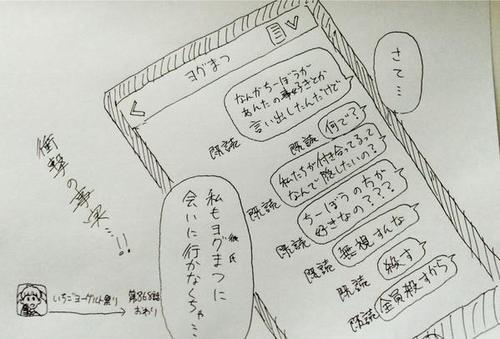 さて…
ヨグまつ
なんかちーぼうが
あんたの事好きとか
言い出したんだけど
既読
何で?
既読
私たちが付き合てるって
なんで隠したいの?
既読
ちーぼうの方が
好きなの???
既読
無視すんな
既読
殺す
既読
全員殺すから
既読
私もヨグまつに
彼氏
会いに行かなくちゃ…
衝撃の事実…!!
いちごヨーグルト祭り
第868話
おわり